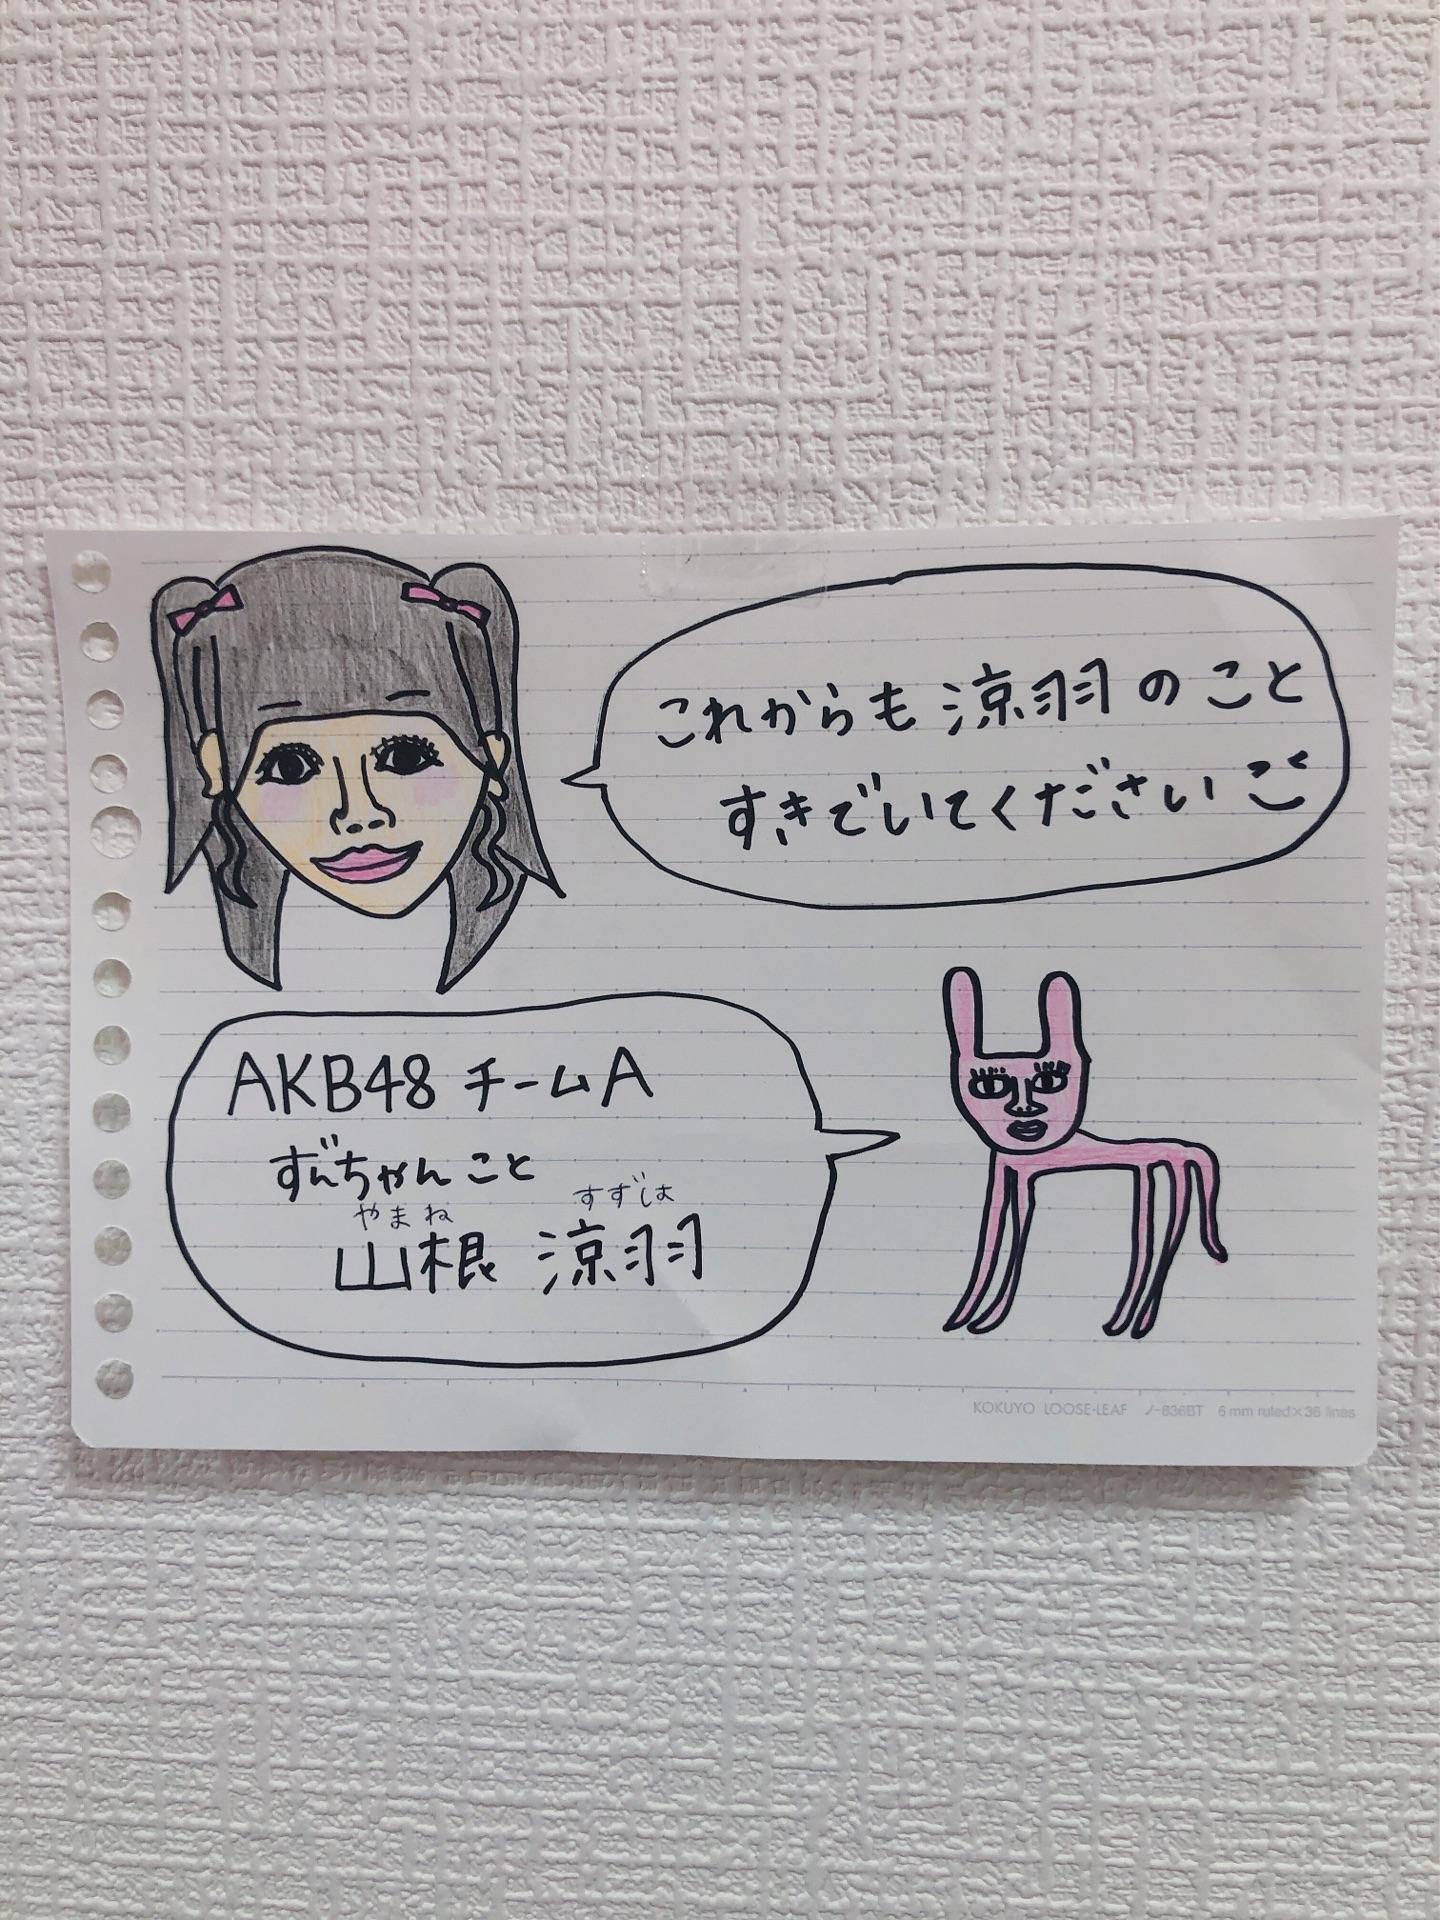 これからも涼羽のこと
すきでいてくださいご
AKB48 チームA
ずんちゃんこと
やまね すずは
山根 涼羽
KOKUYO LOOSE-LEAF ノ-836BT 6mm ruled×36 lines